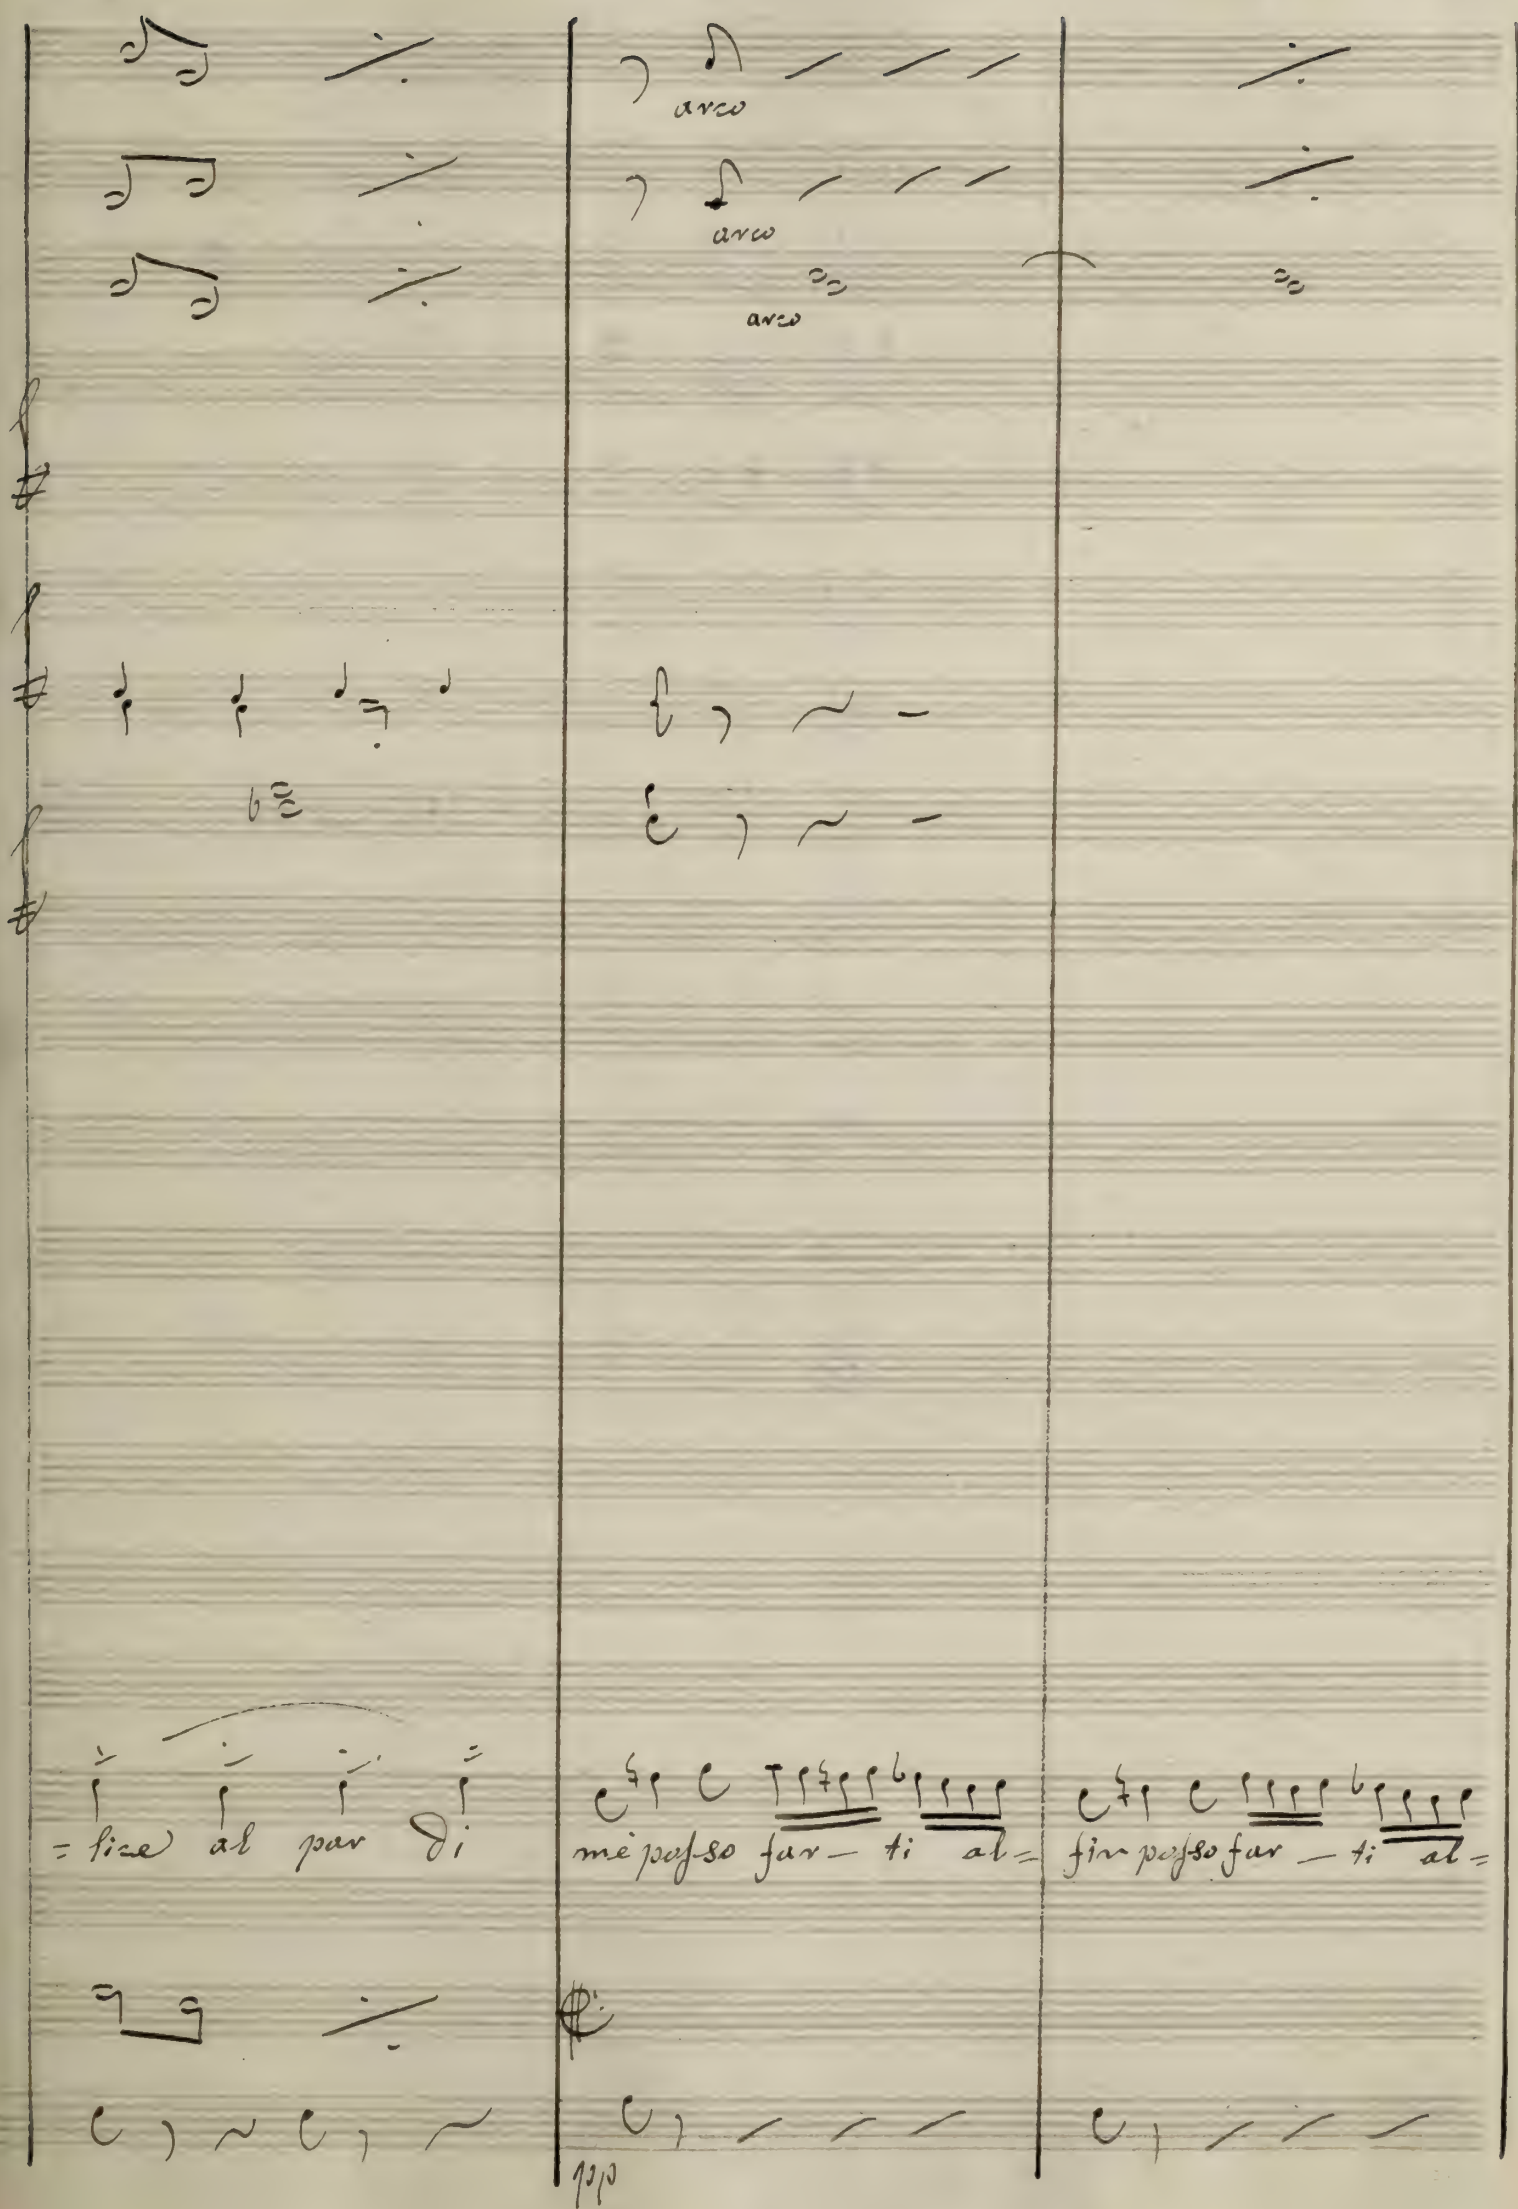 arco
arco
arco
= lice al par di me posso far - ti al = fin posso far - ti al =
pp